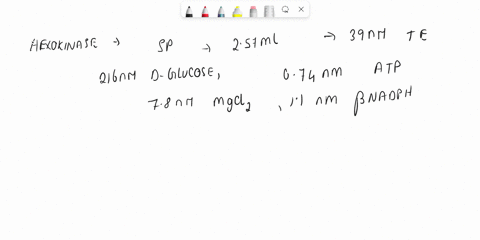 HEXOKINASE → SP → 2.57ml → 39nM TE
216nM D-GLUCOSE, 0.74nm ATP
7.8nM MgCl2, 1.1nm βNADPH